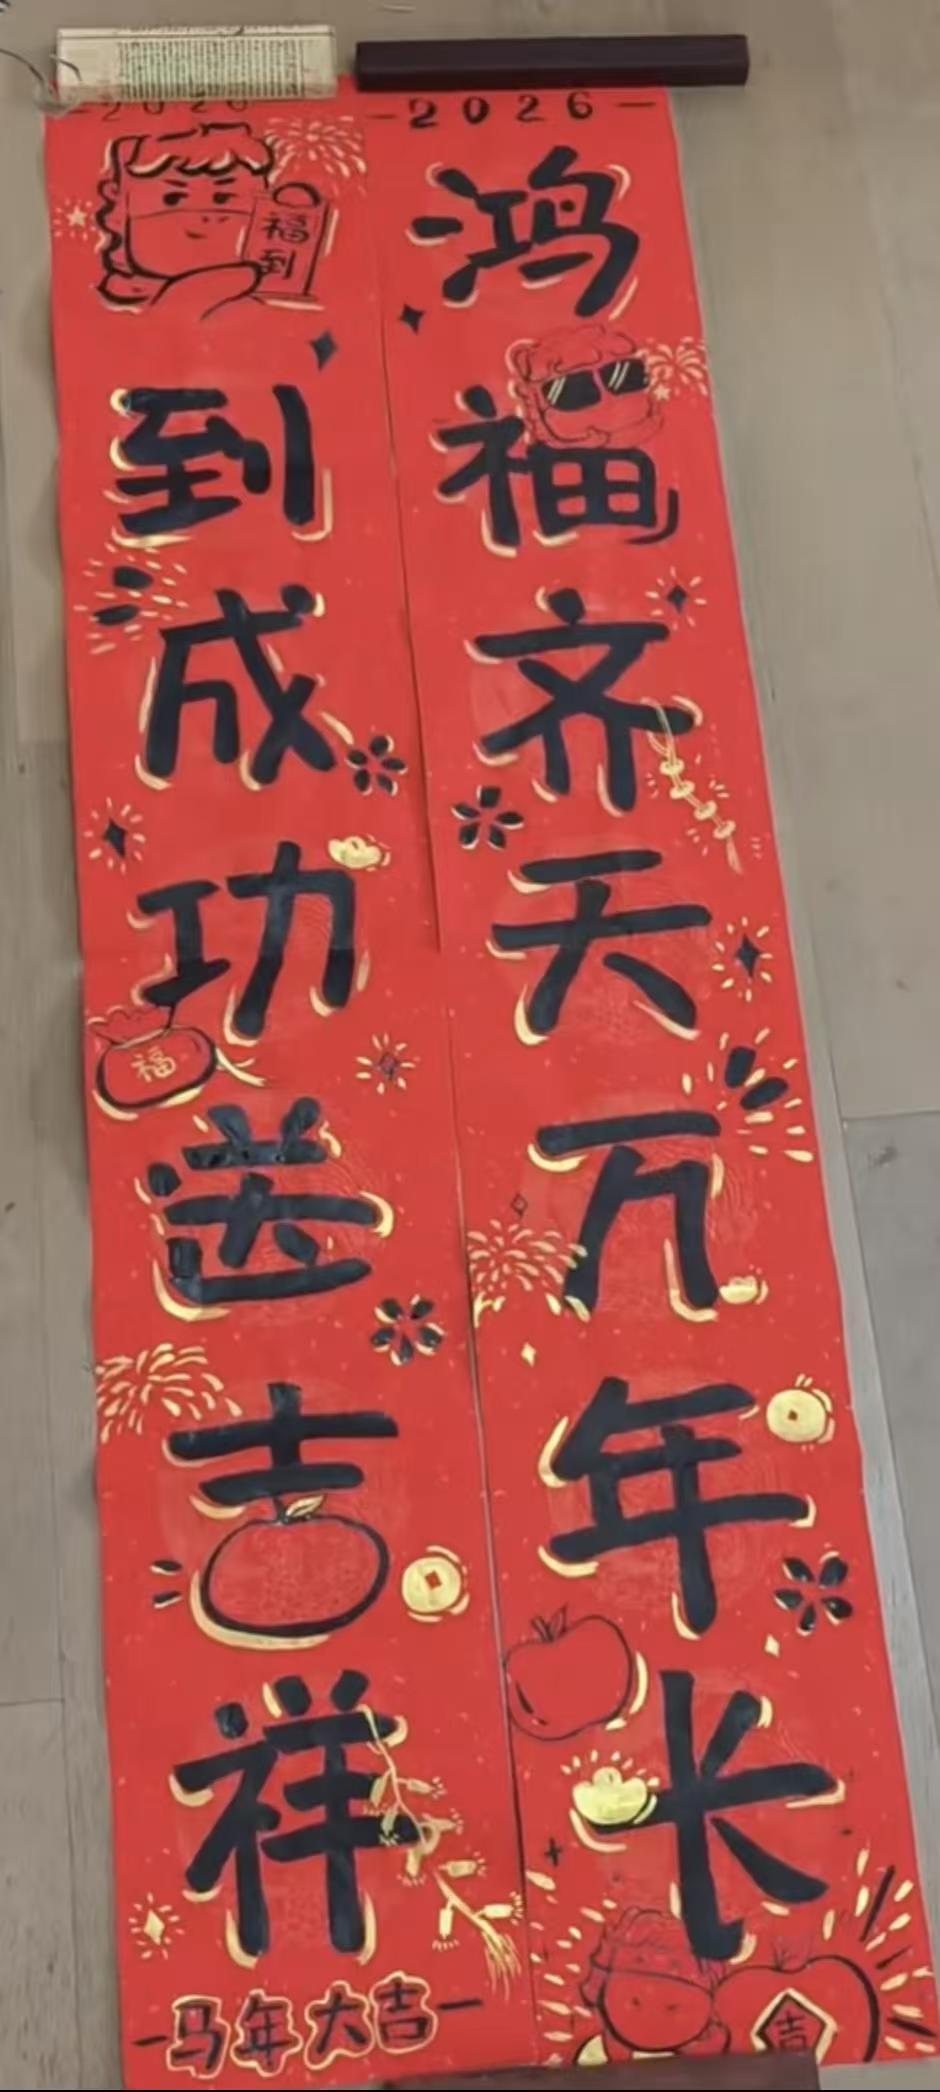 -2026-
鸿福齐天万年长
吉
-2026
福到
到成功送吉祥
福
-马年大吉-